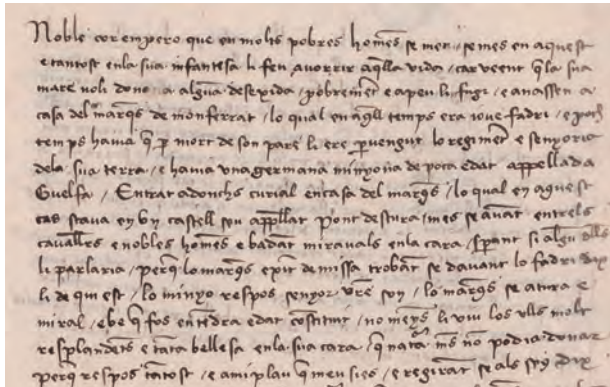 Noble cor empero que en molts pobres homẽs se met / se mes en aquest
e tantost en la sua infantesa li feu auorrir aq̃lla vida / car veent q̃ la sua
mare no li dona a alguã despxida / pobremẽt e a peu li fugi / e anassen a
casa del marq̃s de monferrat / lo qual en aq̃ll temps era ioue fadri / e poch
temps hauia q̃ p mort de son pare li ere puengut lo regimẽt e senyoria
dela sua terra / e hauia vna germana minyona de poca edat appellada
Guelfa / Entrat adonchs curial en casa del marq̃s / lo qual en aquest
cas staua en vn castell seu appellat Pont destura / mes se auãt entrels
cauallrs e nobles homẽs e badãt miraua ls en la cara / spant si algũ dlls
li parlaria / perq̃ lo marq̃s exit de missa trobãt se dauant lo fadri dix
li de qui est / lo minyo respos senyor vr̃e son / lo marq̃s se atura e
miral / e be q̃ fos en tẽdra edat cõstituit / no menys li viu los vlls molt
resplandẽts e tãta bellesa en la sua cara / q̃ natã ms̃ no podia donar
perq̃ respos tãtost / e a mi plau q̃ meu sies / e regirat se als seus dix